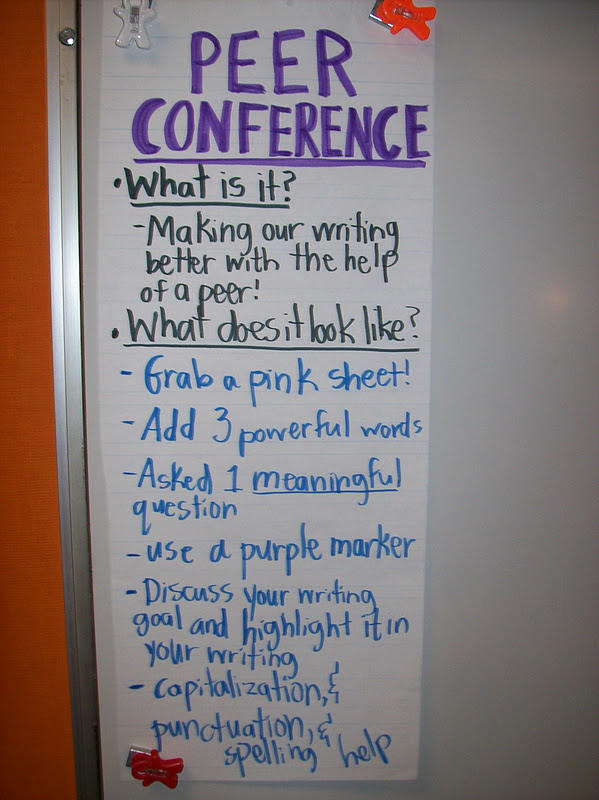 PEER
CONFERENCE
• What is it?
- Making our writing
better with the help
of a peer!
• What does it look like?
- Grab a pink sheet!
- Add 3 powerful words
- Asked 1 meaningful
question
- use a purple marker
- Discuss your writing
goal and highlight it in
your writing
- Capitalization, &
punctuation, &
spelling help